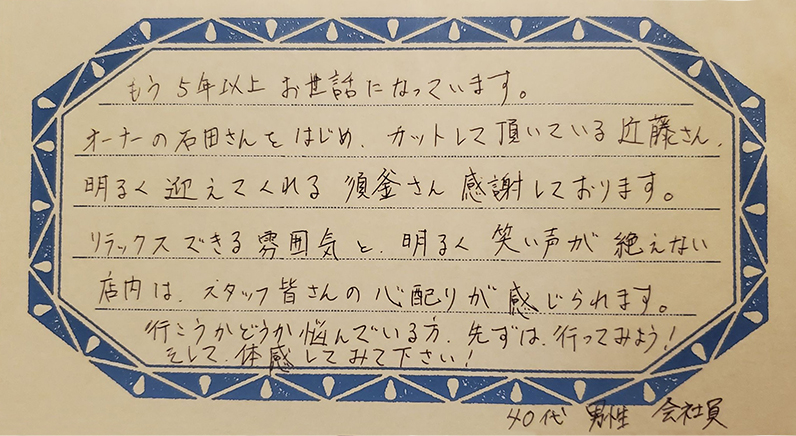 もう5年以上お世話になっています。
オーナーの石田さんをはじめ、カットして頂いている近藤さん、
明るく迎えてくれる須釜さん感謝しております。
リラックスできる雰囲気と、明るく笑い声が絶えない
店内は、スタッフ皆さんの心配りが感じられます。
行こうかどうか悩んでいる方、先ずは、行ってみよう!
そして、体感してみて下さい!
40代 男性 会社員